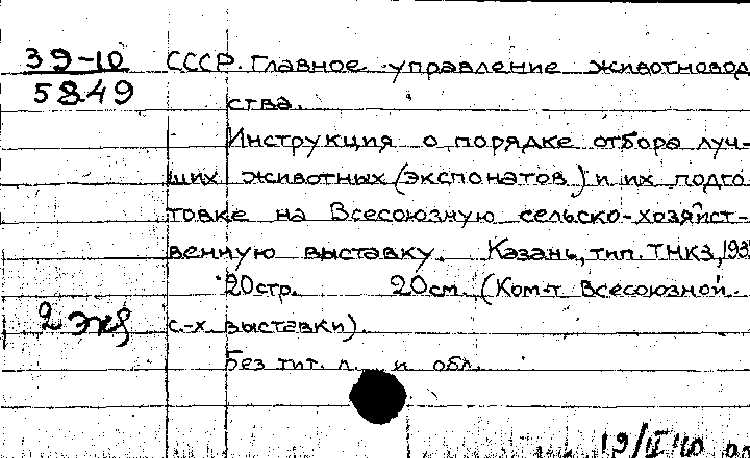 39-10
5849
СССР. Главное управление животновод
ства.
Инструкция о порядке отбора луч-
ших животных (экспонатов) и их подго
товке на Всесоюзную сельско-хозяйст-
венную выставку. Казань, тип. ТНКЗ, 193
20стр. 20см. (Ком-т Всесоюзной
с-х. выставки).
2 экз
Без тит. л. и обл.
19/II 40